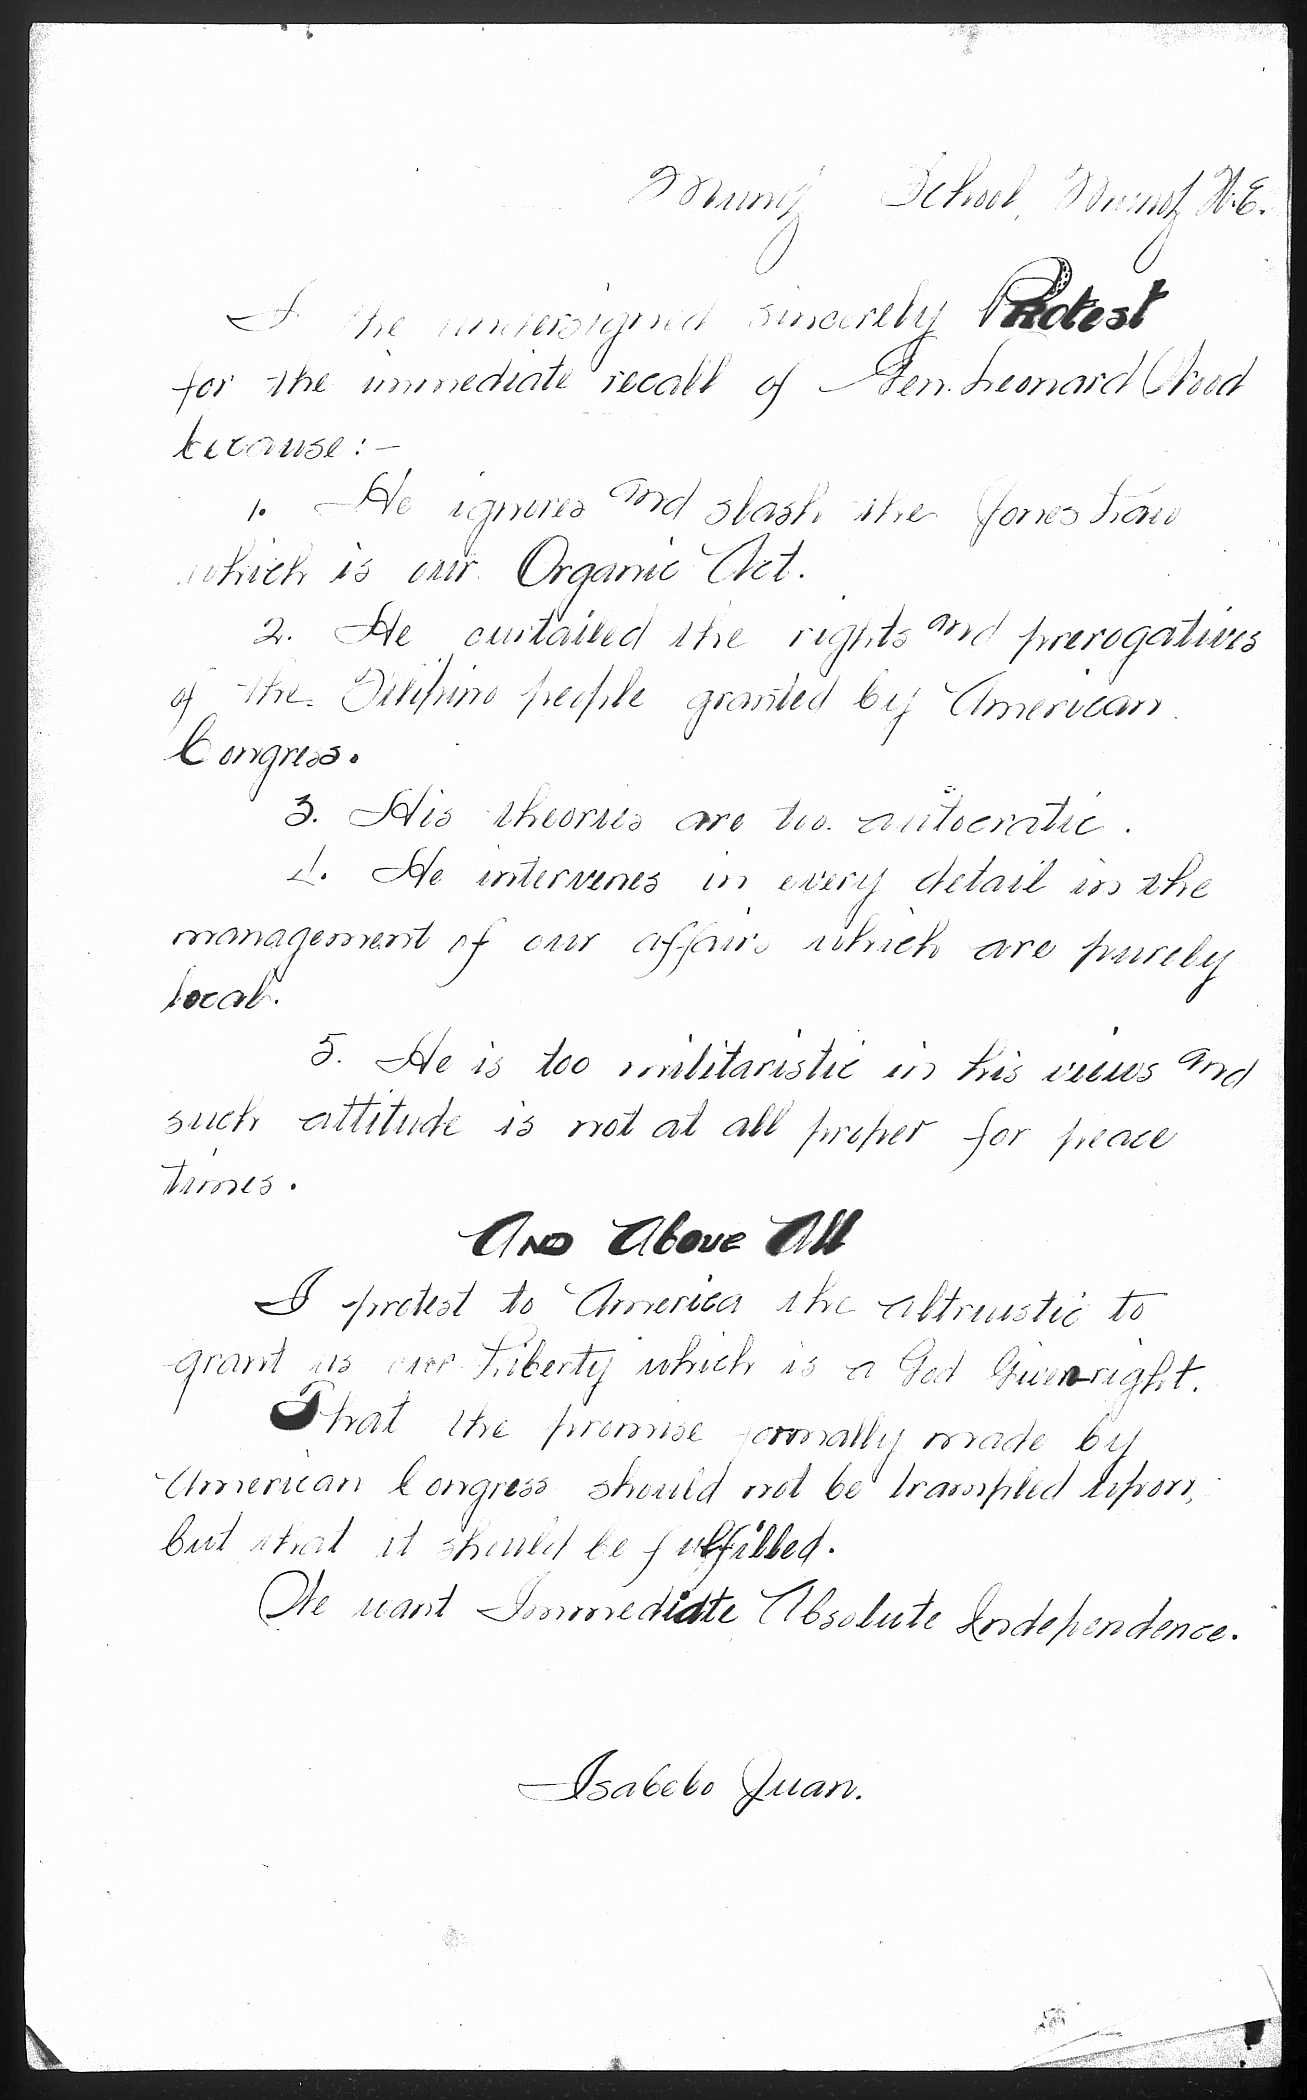 Munoz School, Munoz N.E.
I the undersigned sincerely Protest
for the immediate recall of Gen. Leonard Wood
because:-
1. He ignores and slash the Jones Law
which is our Organic Act.
2. He curtailed the rights and prerogatives
of the Filipino people granted by American
Congress.
3. His theories are too autocratic.
4. He intervenes in every detail in the
management of our affairs which are purely
local.
5. He is too militaristic in his views and
such attitude is not at all proper for peace
times.
AND Above All
I protest to America the altruistic to
grant us our Liberty which is a God Given right.
That the promise formally made by
American Congress should not be trampled upon,
but that it should be fulfilled.
We want Immediate Absolute Independence.
Isabelo Juan.